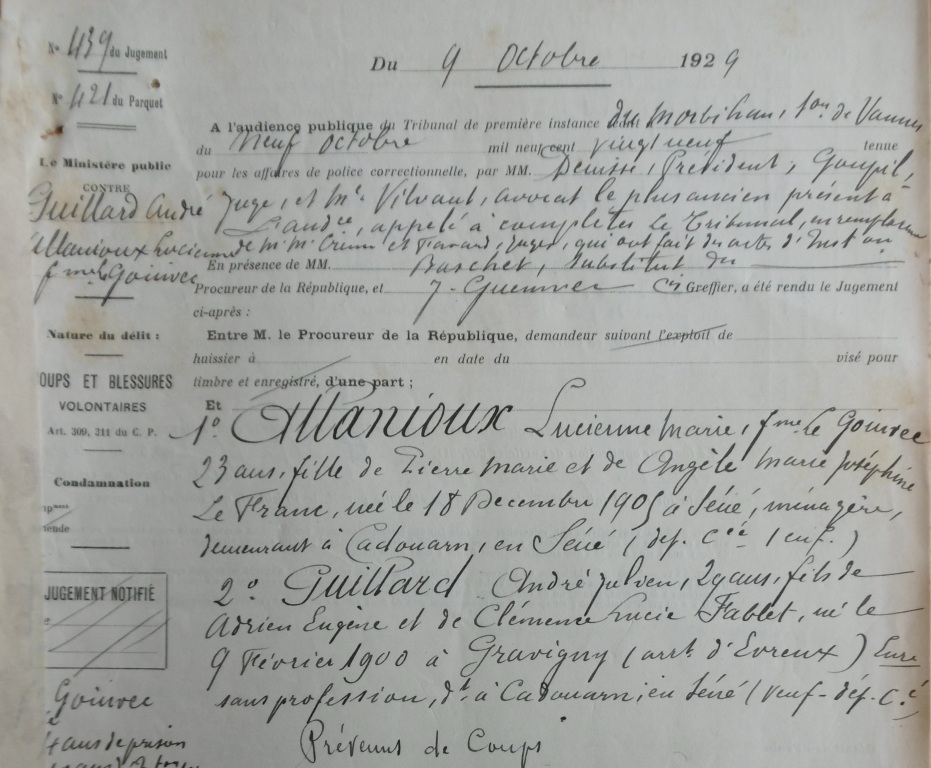 N° 439 du Jugement
N° 421 du Parquet
Le Ministère public
CONTRE
Guillard André
Manioux Lucienne
fme Le Goinvec
Nature du délit :
OUPS ET BLESSURES
VOLONTAIRES
Art. 309, 311 du C. P.
Condamnation
JUGEMENT NOTIFIÉ
Goinvec
4 ans de prison
Du 9 Octobre 1929
A l'audience publique du Tribunal de première instance du Morbihan, 1on de Vannes
du Neuf Octobre mil neuf cent vingt neuf tenue
pour les affaires de police correctionnelle, par MM. Denisse, Président, Goupil,
Juge, et Me Vilvaut, avocat le plus ancien présent à
l'audce, appelé à compléter le Tribunal, en remplacemt
de M.M. et juges, qui ont fait des actes d'Inst on
En présence de MM. Baschet, Substitut du
Procureur de la République, et J. Guenver Cs Greffier, a été rendu le Jugement
ci-après :
Entre M. le Procureur de la République, demandeur suivant l'exploit de
huissier à en date du visé pour
timbre et enregistré, d'une part ;
Et
1° Manioux Lucienne Marie, fme Le Goinvec
23 ans, fille de Pierre Marie et de Angèle Marie Joséphine
Le Franc, née le 18 Decembre 1905 à Séné, ménagère,
demeurant à Cadouarn, en Séné (déf. Cée 1 enf.)
2° Guillard André Julien, 29 ans, fils de
Adrien Eugène et de Clémence Lucie Fablet, né le
9 Février 1900 à Gravigny (arrt d'Evreux) Eure
sans profession, dt à Cadouarn, en Séné (veuf - déf. Cé
Prévenus de Coups